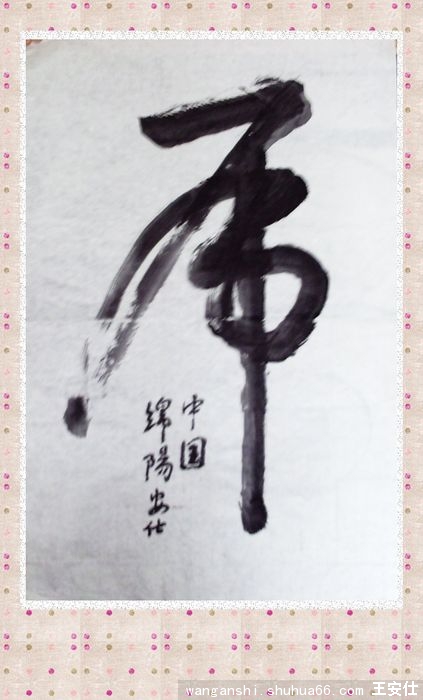 虎
中国
綿陽安仕
wanganshi shuhua66.com 王安仕